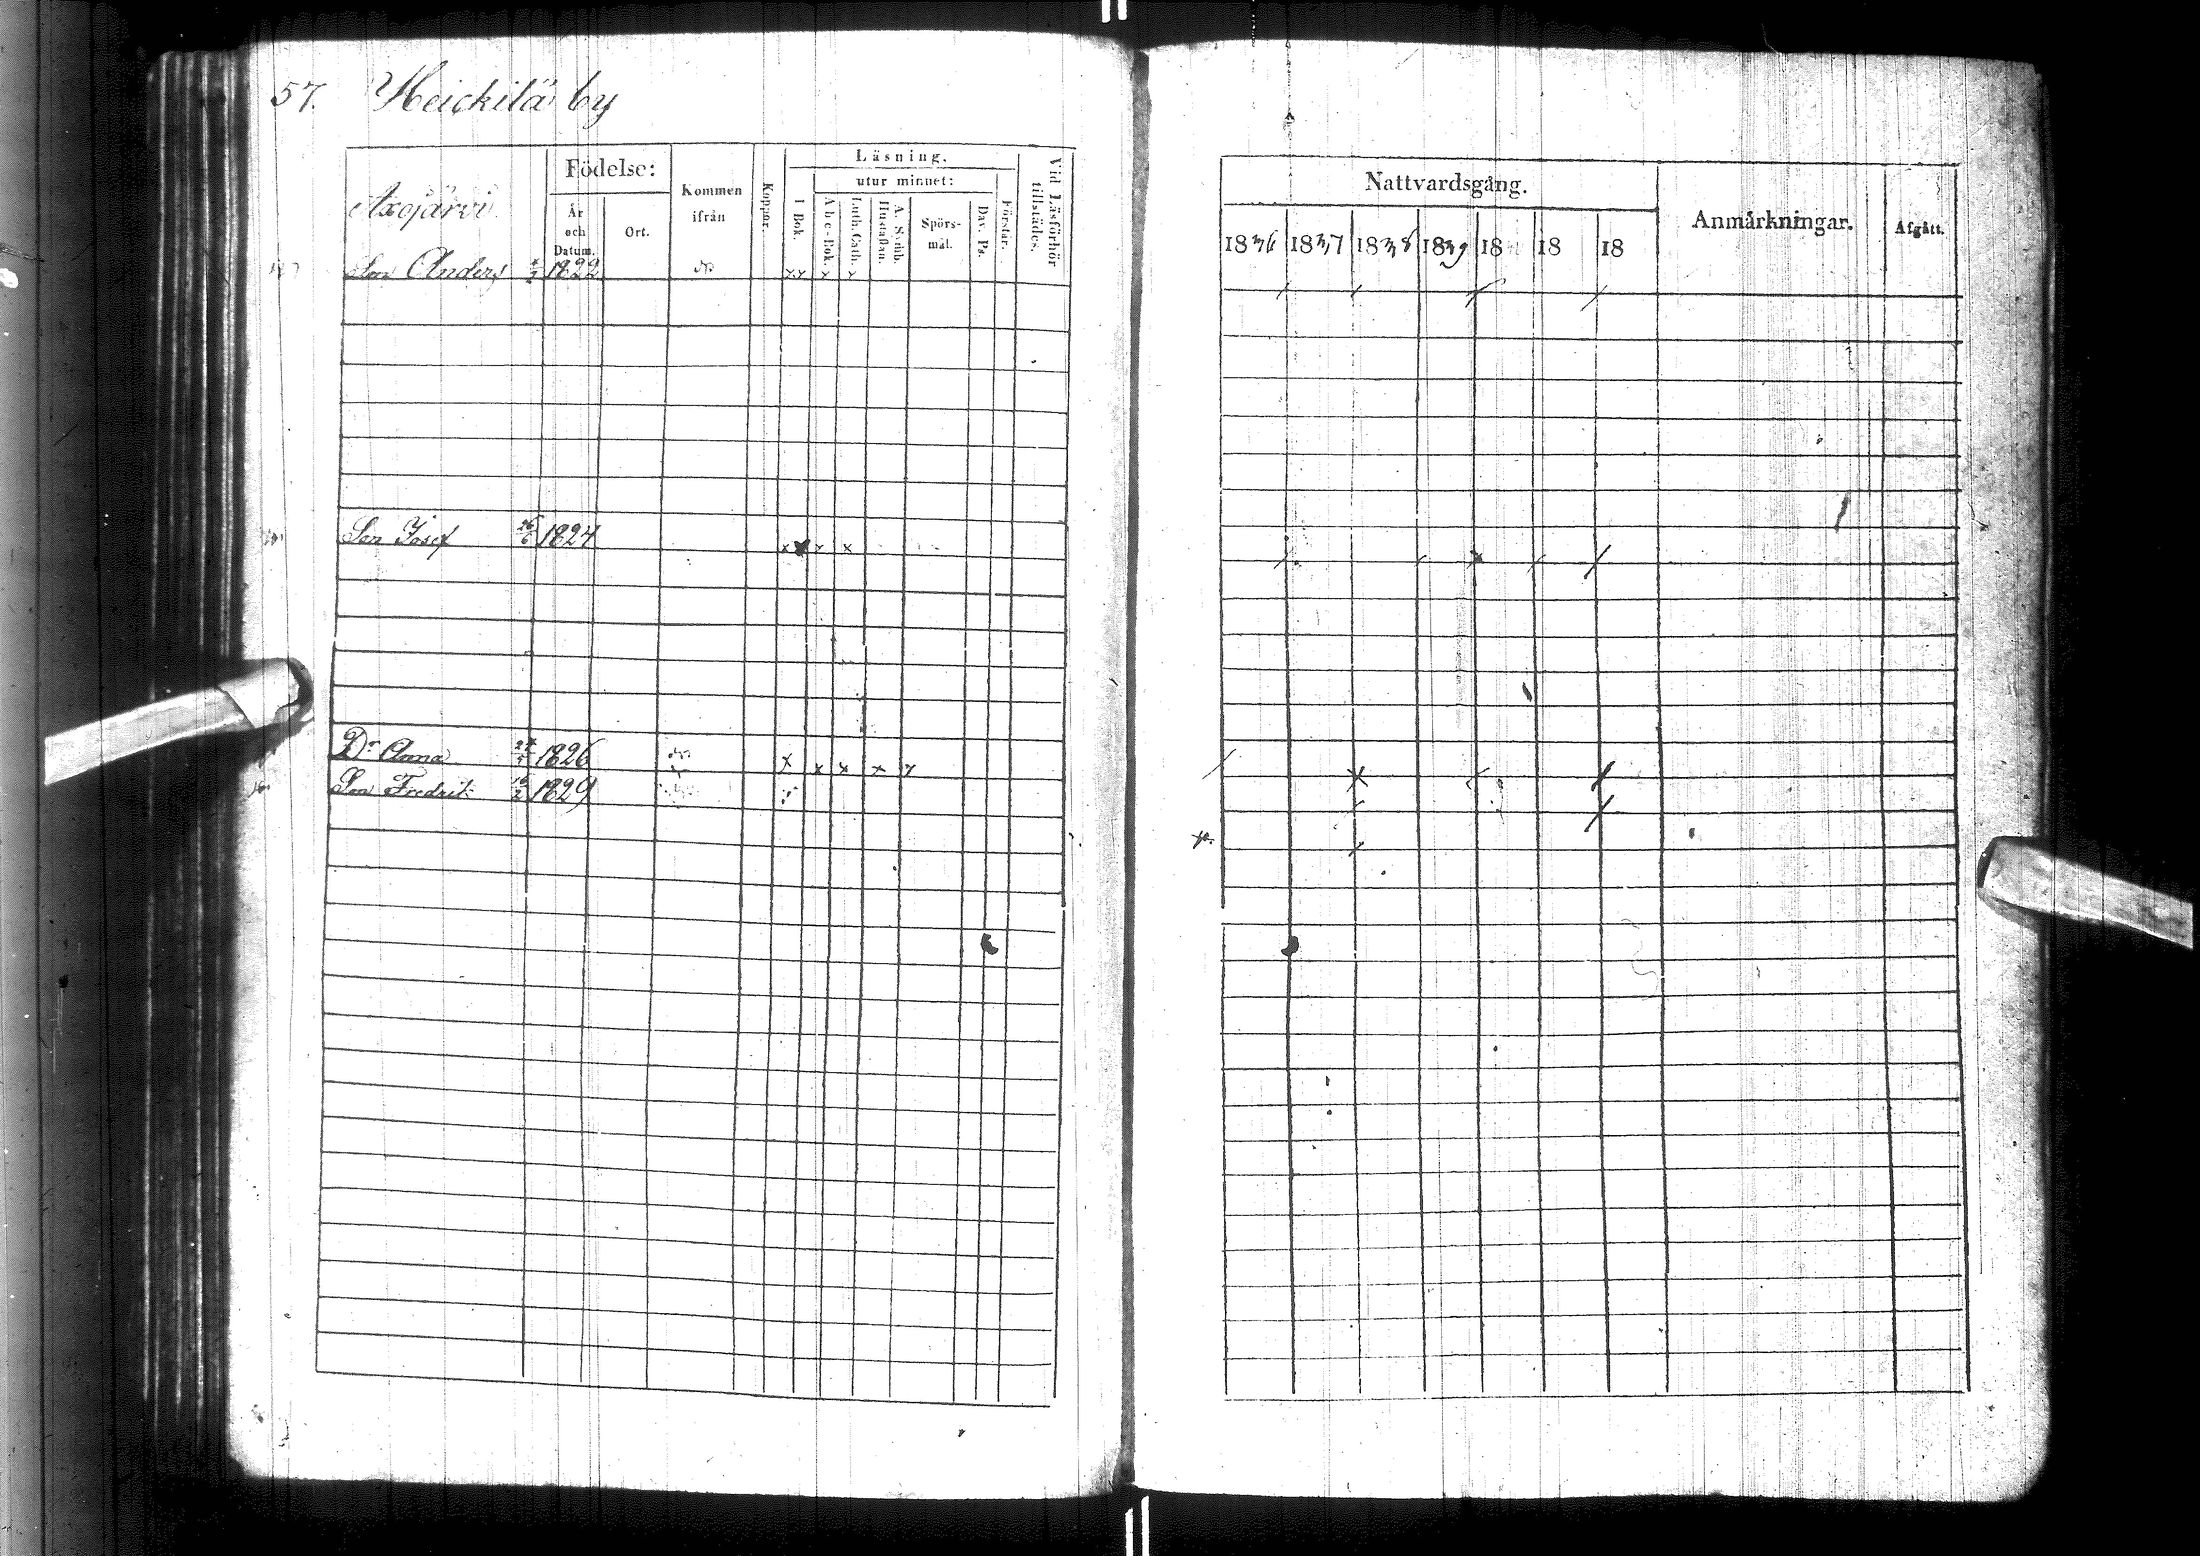 57. Heickilä by
Axojärvi
Födelse:
År och Datum.
Ort.
Kommen ifrån
Koppor.
Läsning.
I Bok.
utur minnet:
A b c-Bok.
Luth. Cath.
Hustaflan.
A. Symb.
Spörs-mål.
Dav. Ps.
Förstår.
Vid Läsförhör tillstädes.
Nattvardsgång.
1836 1837 1838 1839 18 18 18
Anmärkningar.
Afgått.
Son Anders 1822
Son Josef 26/6 1824
Dr Anna 1826
Son Fredrik 16/2 1829